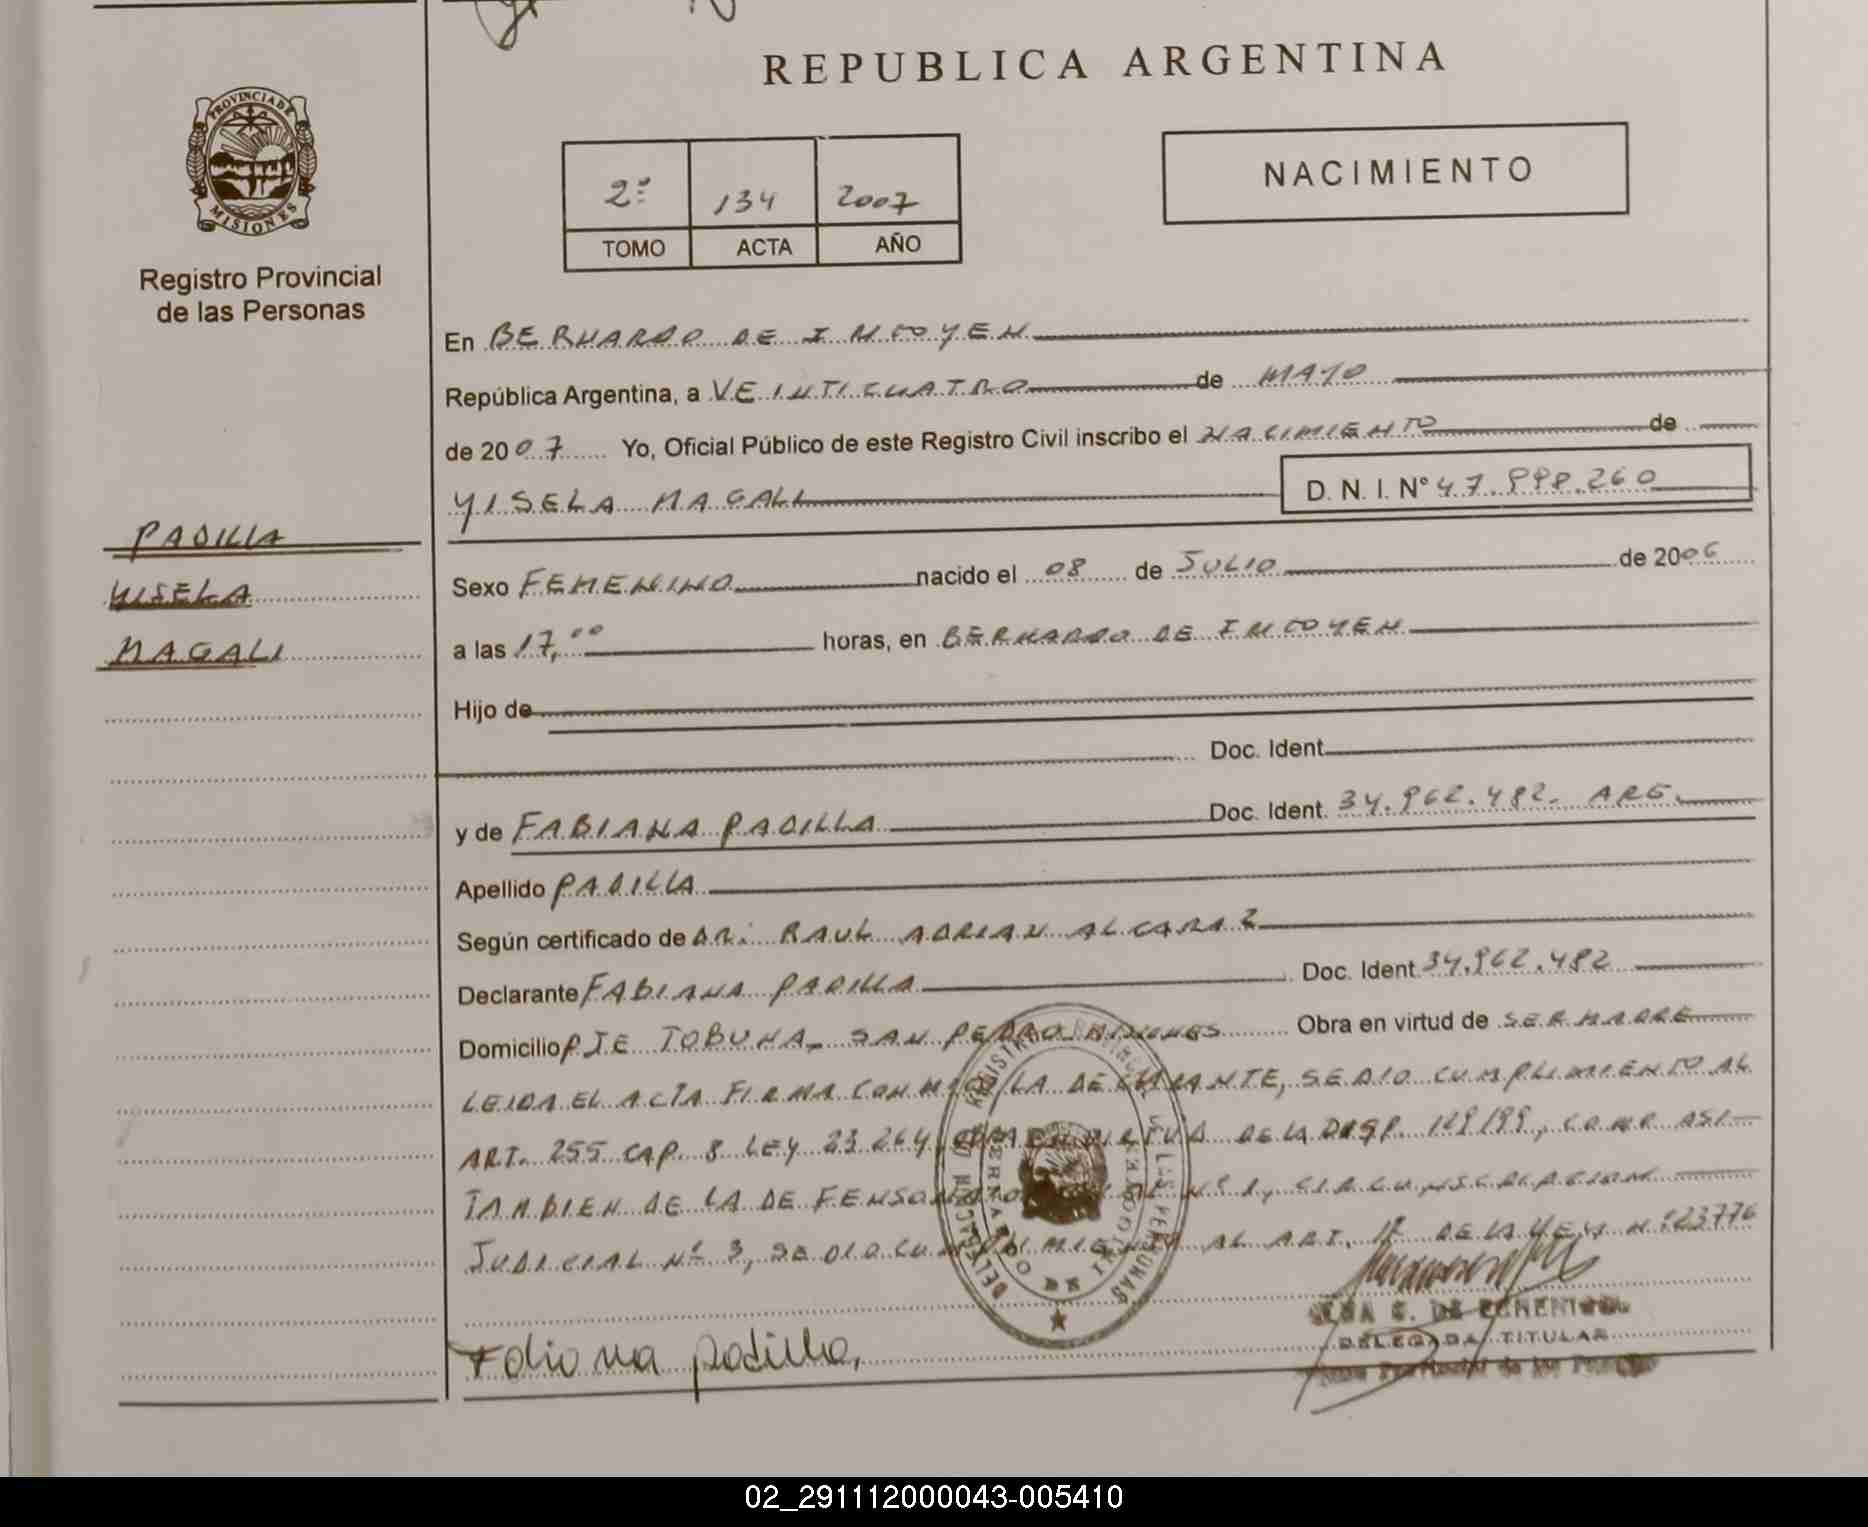 REPUBLICA ARGENTINA
PROVINCIA DE
MISIONES
Registro Provincial
de las Personas
2º 134 2007
TOMO ACTA AÑO
NACIMIENTO
En BERNARDO DE IRIGOYEN
República Argentina, a VEINTICUATRO de MAYO
de 2007 Yo, Oficial Público de este Registro Civil inscribo el NACIMIENTO de
YISELA MAGALI D. N. I. Nº 47.998.260
PADILLA
YISELA
MAGALI
Sexo FEMENINO nacido el 08 de JULIO de 2006
a las 17,00 horas, en BERNARDO DE IRIGOYEN
Hijo de
Doc. Ident.
y de FABIANA PADILLA Doc. Ident. 34.962.482. ARG.
Apellido PADILLA
Según certificado de DR. RAUL ADRIAN ALCARAZ
Declarante FABIANA PADILLA Doc. Ident. 34.962.482
Domicilio PJE TOBUNA, SAN PEDRO MISIONES Obra en virtud de SER MADRE
LEIDA EL ACTA FIRMA CONMIGO LA DECLARANTE, SE DIO CUMPLIMIENTO AL
ART. 255 CAP. 8 LEY 23.264, VIRTUD DE LA DISP. 119/99, COMO ASI
TAMBIEN DE LA DEFENSORIA Nº 1, CIRCUNSCRIPCION
JUDICIAL Nº 3, SE DIO CUMPLIMIENTO AL ART. 1º DE LA LEY Nº 23776
DELEGADA TITULAR
Fabiana padilla,
02_291112000043-005410